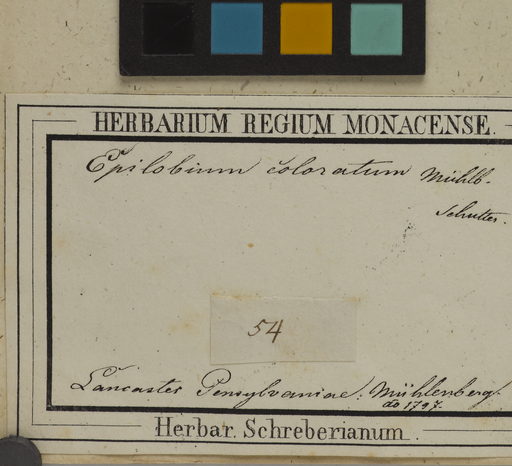 HERBARIUM REGIUM MONACENSE.
Epilobium coloratum Mühlb.
54
Lancaster Pensylvaniae: Mühlenberg.
do 1797.
Herbar. Schreberianum.